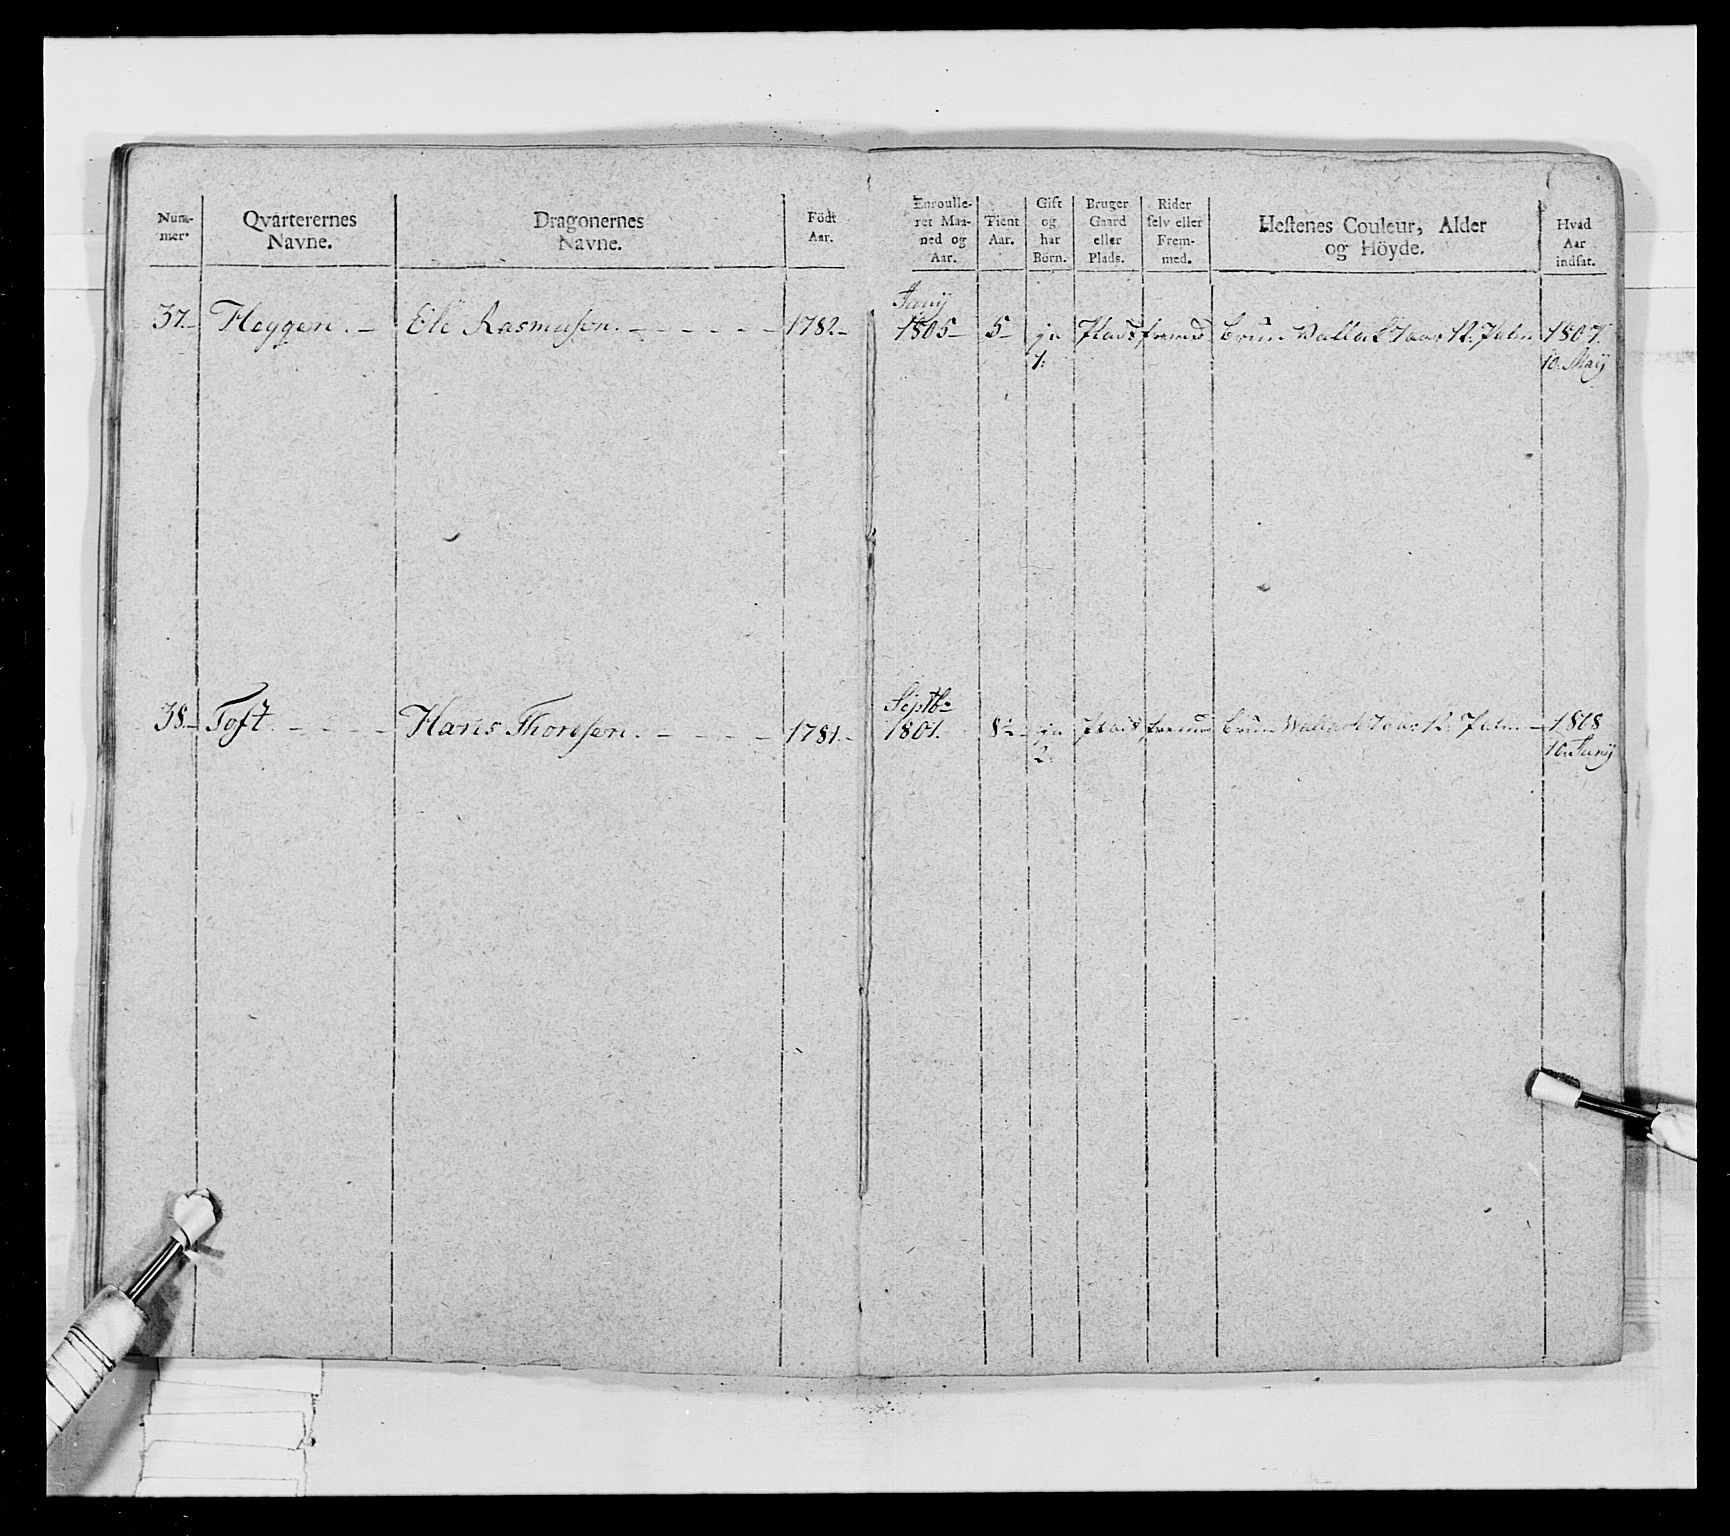 Num-
mer.
Qvarterernes
Navne.
Dragonernes
Navne.
Födt
Aar.
Enroulle-
ret Maa-
ned og
Aar.
Tient
Aar.
Gift
og
har
Börn.
Bruger
Gaard
eller
Plads.
Rider
selv eller
Frem-
med.
Hestenes Couleur, Alder
og Höyde.
Hvad
Aar
indsat.
Junij
37. Heggen. Ole Rasmusen. 1782 1805 5 ja Plads fremd brun Wallak 7 aar 12. Palm 1807.
1. 10. Maij
Septbr
38. Toft. Hans Thoresen. 1781. 1801. 8½ ja Plads fremd brun Wallak 7 aar 12. Palm 1808
2. 10. Junij